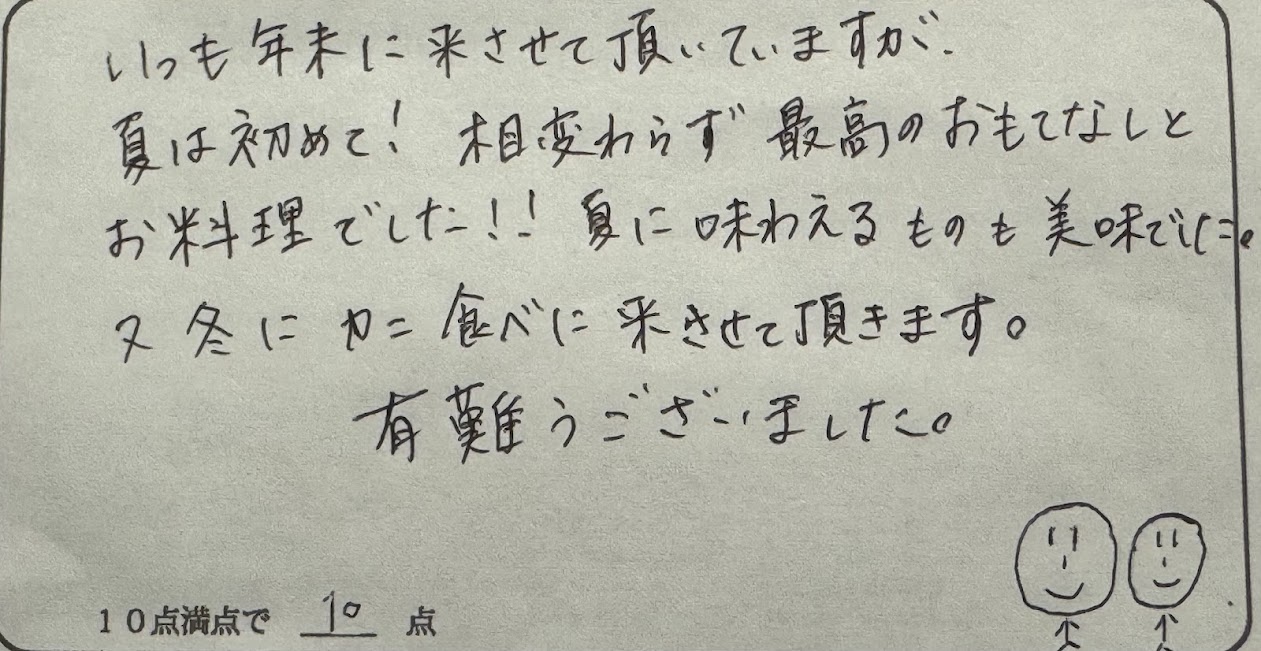 いつも年末に来させて頂いていますが、
夏は初めて！ 相変わらず最高のおもてなしと
お料理でした！！ 夏に味わえるものも美味でした。
又冬にカニ食べに来させて頂きます。
有難うございました。
10点満点で 10 点